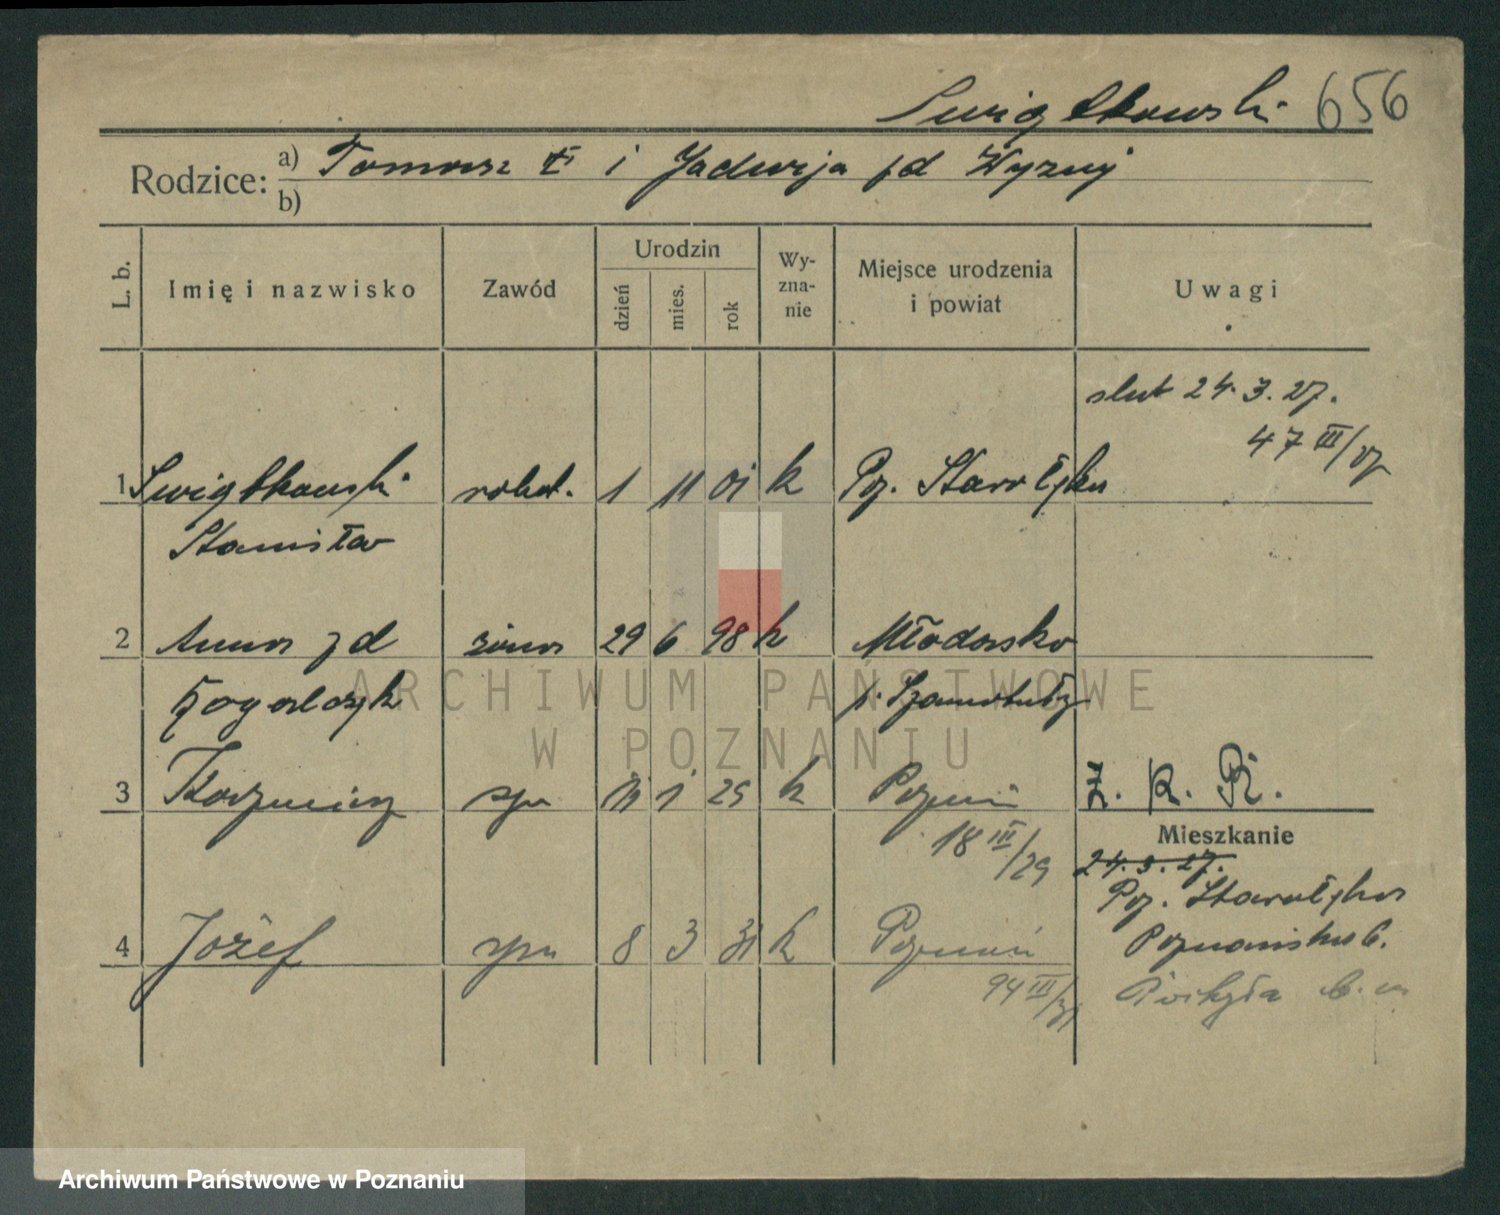 Swiątkowski 656
Rodzice: a) Tomasz i Jadwiga zd Wyzuj
b)
L. b. Imię i nazwisko Zawód Urodzin dzień mies. rok Wy-zna-nie Miejsce urodzenia i powiat Uwagi
slub 24.3.27.
47 III/27
1 Swiątkowski robot. 1 11 01 k Poz. Starołęka
Stanisław
2 Anna zd żona 29 6 98 k Młodasko
p. Szamotuły
3 Kazimierz syn 11 1 29 k Poznań Z. K. P.
Mieszkanie
18 III/29 24.3.27.
Poz. Starołęka
4 Józef syn 8 3 31 k Poznań Poznańska 6.
94 III/31
ARCHIWUM PAŃSTWOWE
W POZNANIU
Archiwum Państwowe w Poznaniu